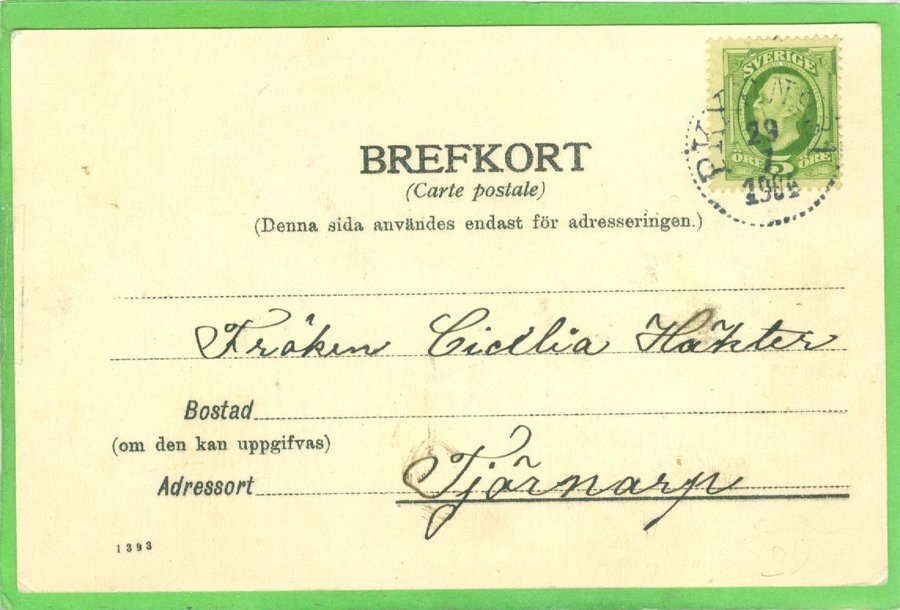 SVERIGE
ÖRE 5 ÖRE
29
1
BREFKORT
(Carte postale)
(Denna sida användes endast för adresseringen.)
Fröken Cicilia
Bostad
(om den kan uppgifvas)
Adressort Tjörnarp
1393